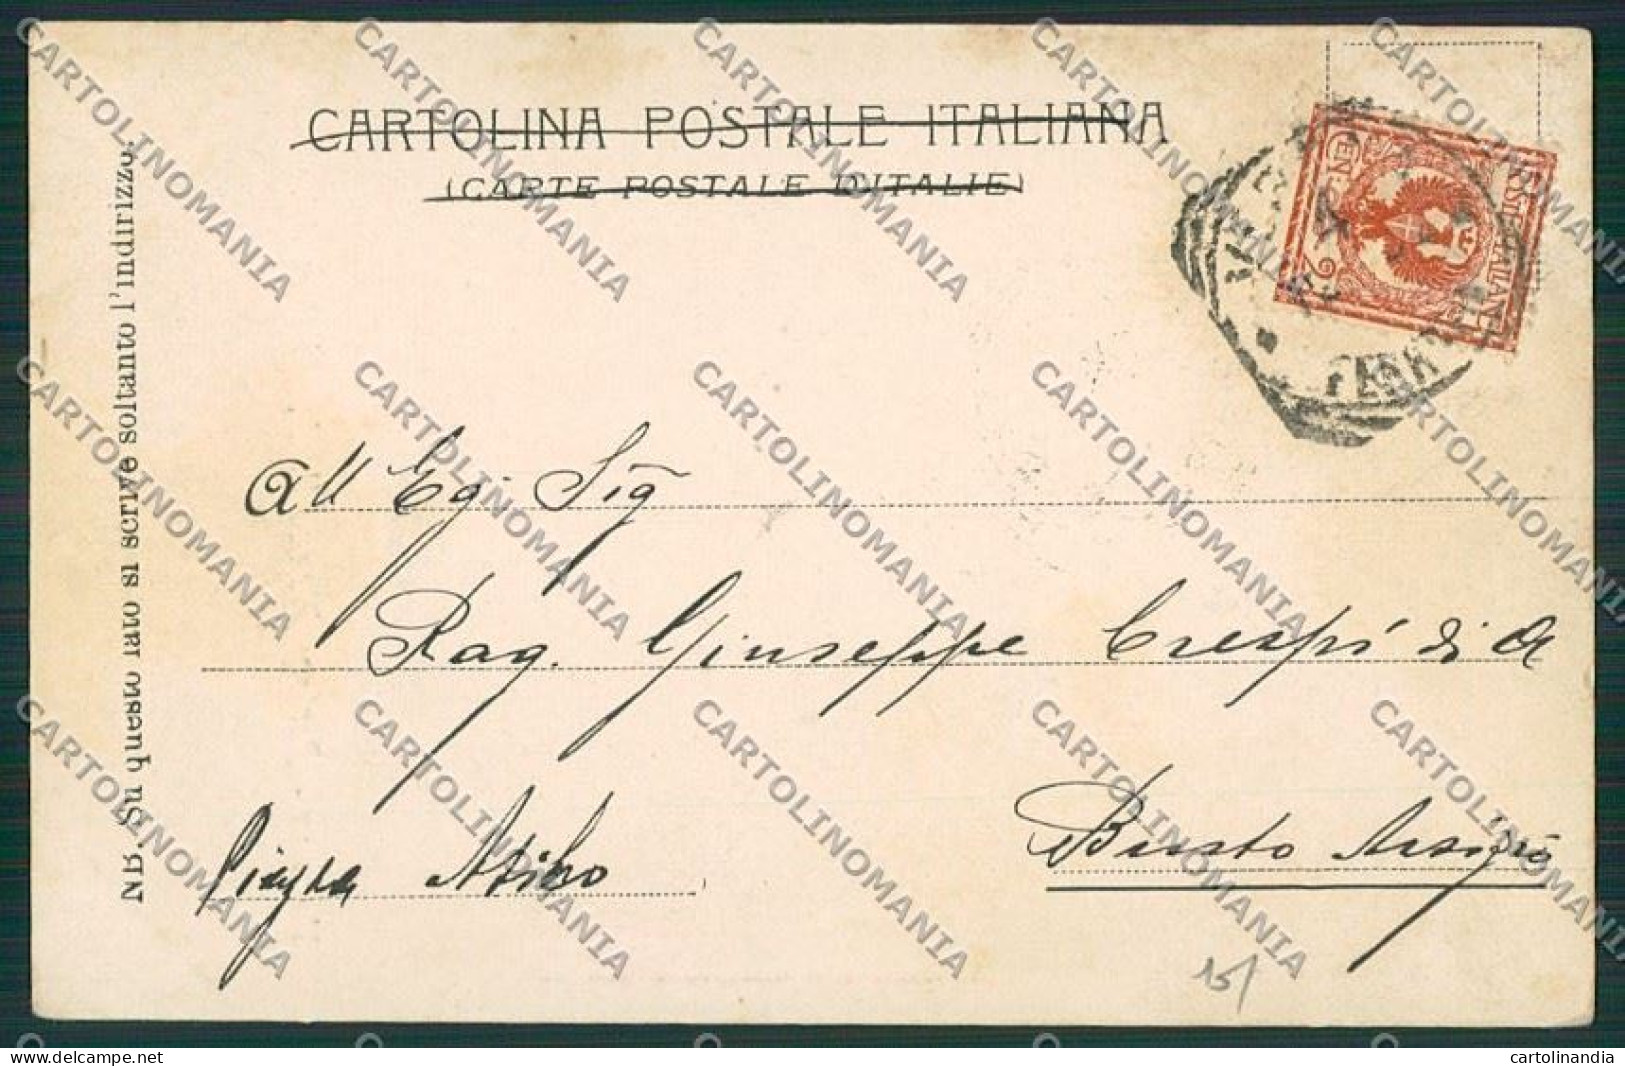 CARTOLINA POSTALE ITALIANA
(CARTE POSTALE D'ITALIE)
NB. Su questo lato si scrive soltanto l'indirizzo.
POSTE ITALIANE
CENT. 2
All Eg. Sig
Rag. Giuseppe Crespi di A
Busto Arsizio
Piazza Asilo
15/
CARTOLINOMANIA
cartolinandia
www.delcampe.net